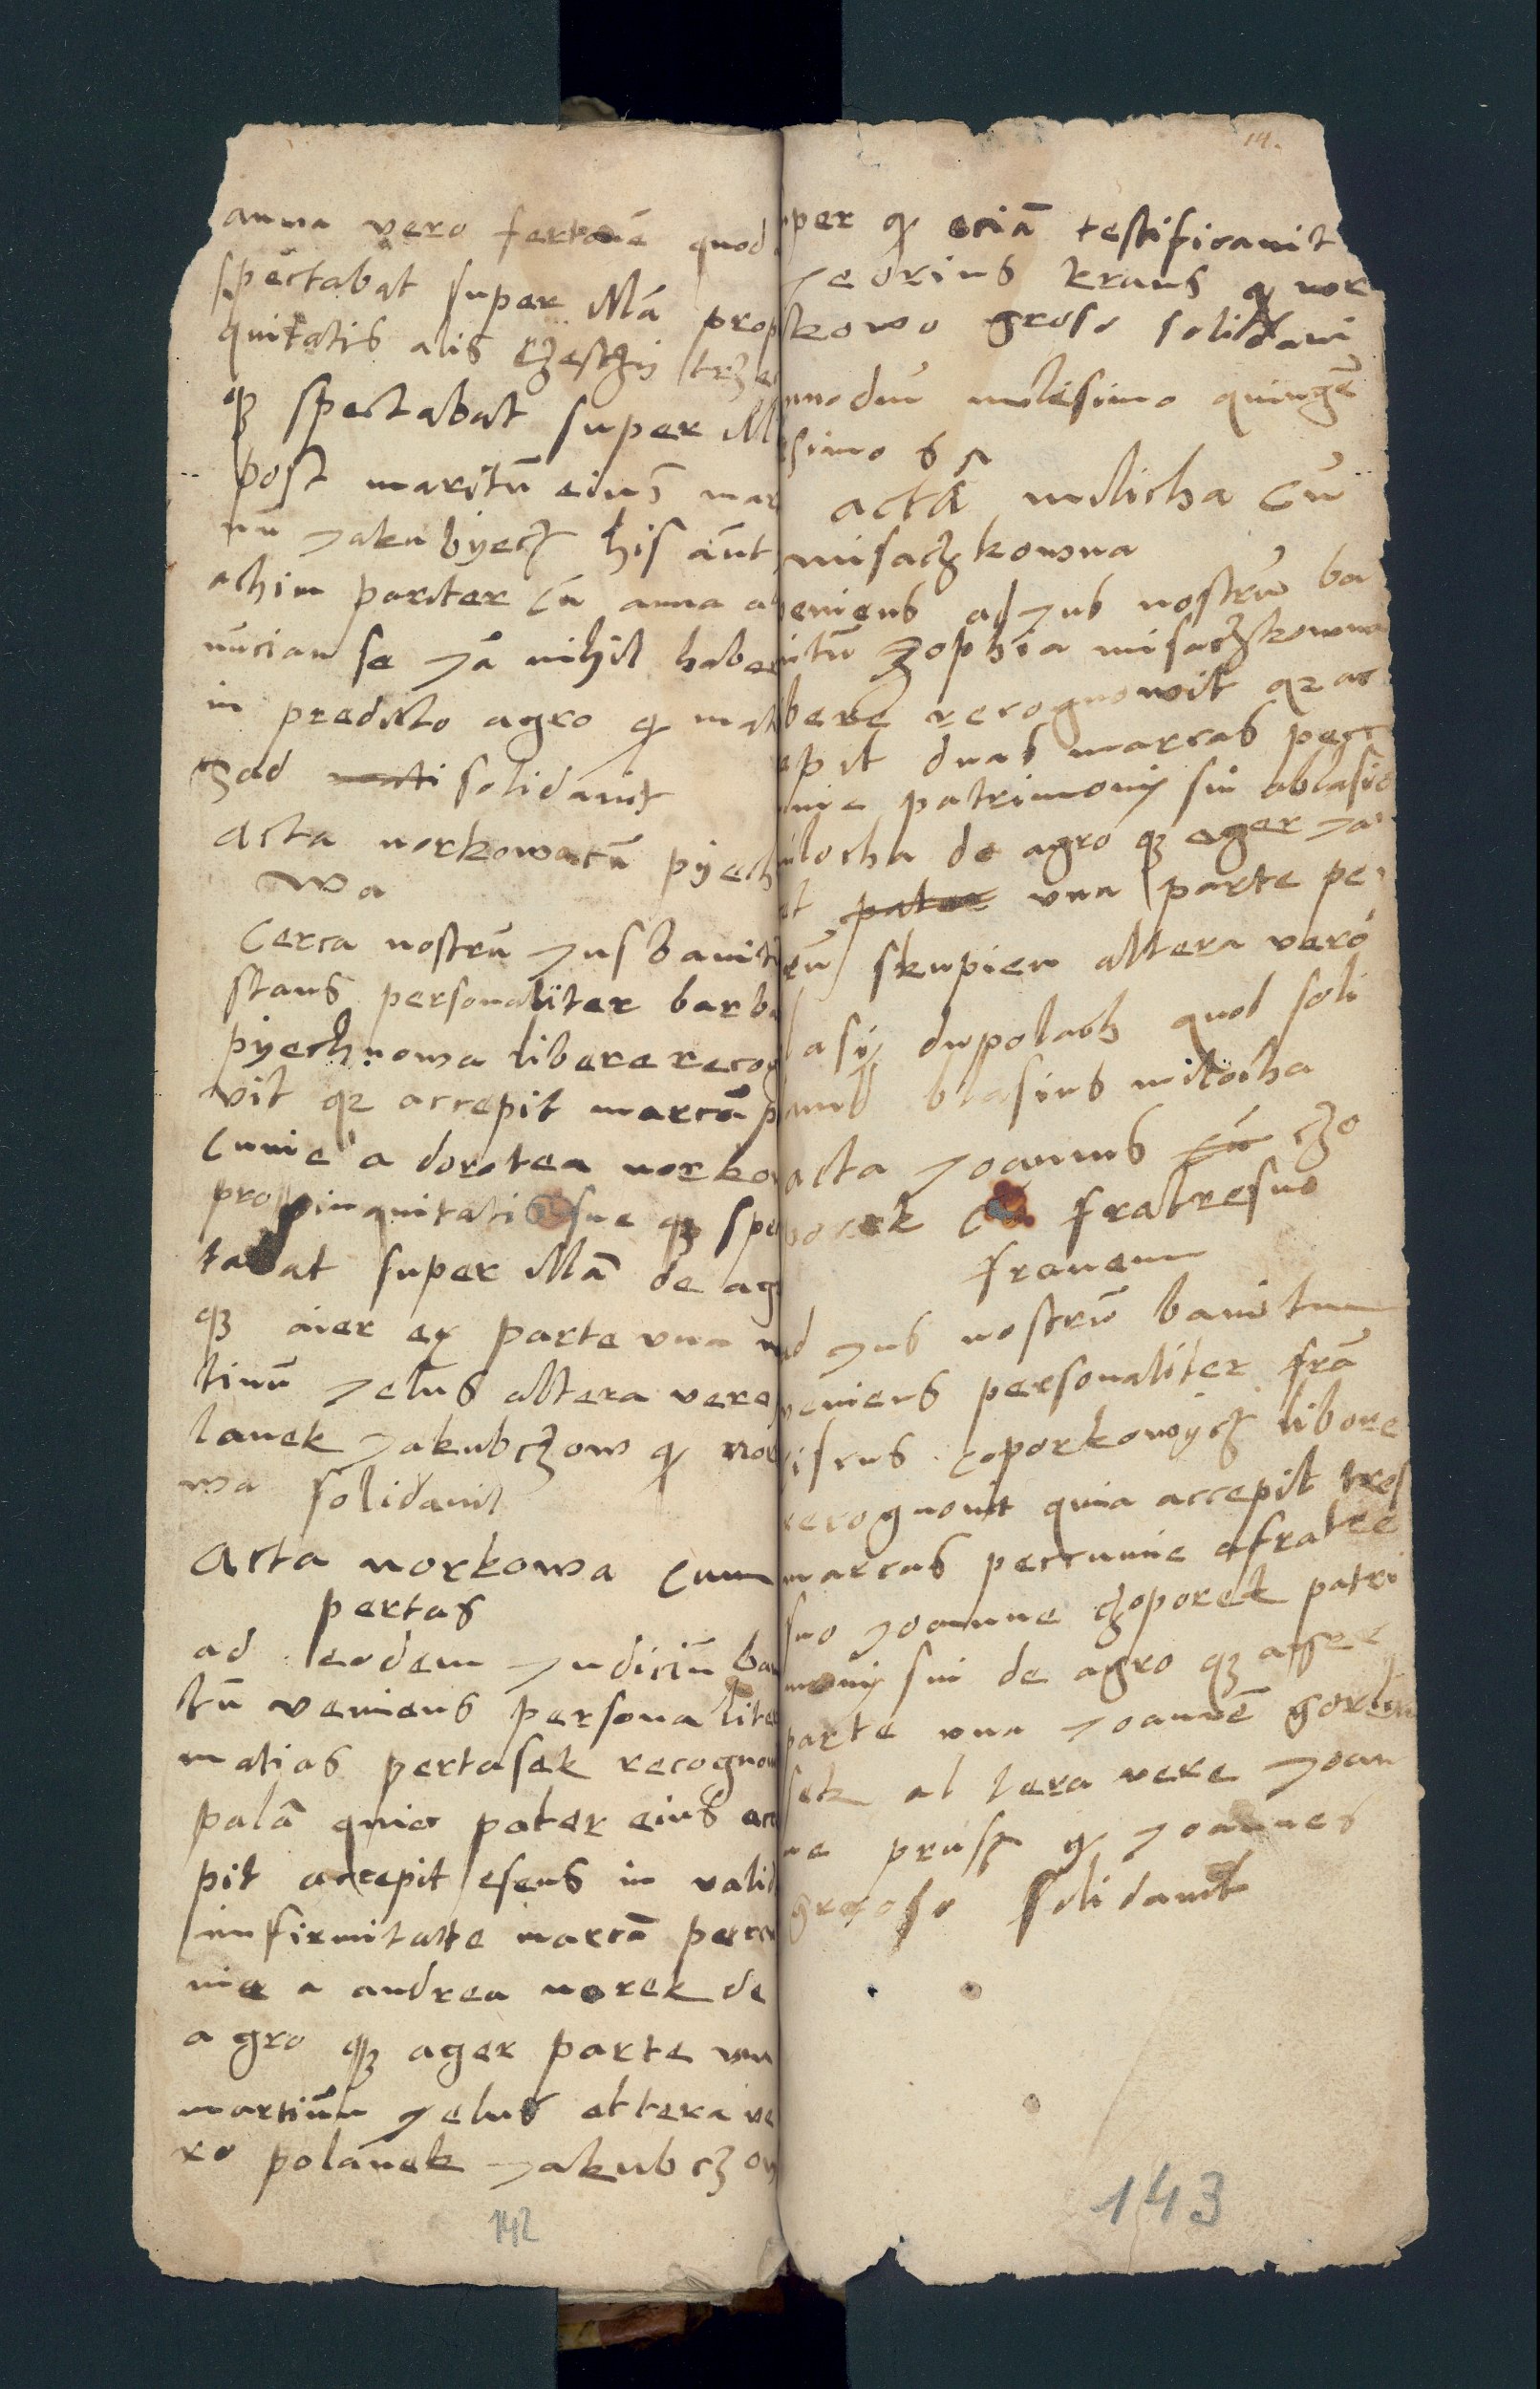 anna vero fertonē quod
spectabat super illā prop
quitatis alis czesczy trze
qz spectabat super ill
post maritū eius mar
nū Jakubyecz his aūt
achim pariter cū anna a
nūcian se Jā nihil haber
in predicto agro q mat
sad solidavit
acta norkowa cū pyech
wa
Cerca nostrū Jus banit
stans personaliter barba
pyechnowa libere recog
vit qz accepit marcā p
cunie a dorotea norkow
propinquitatis sue qz spe
tabat super illā de ag
qz aier ex parte vna m
tinū Jelus altera vero
lanek Jakubczow q nor
wa solidavit
Acta norkowa cum
pertas
ad eodem Judiciū ban
tū veniens personalite
matias pertasek recognow
palā quia pater eius acc
pit accepit esens in valid
infirmitatte marcā peccu
nie a andrea norek de
agro qz ager parte vna
martinū Jelus altera ve
ro polanek Jakubczow
142
14.
per q eciā testificavit
Jeorius kraus q nor
kowo groso solidavi
nno dnī milesimo quinge
simo 6
acta milicha cū
misaczkowna
veniens ad Jus nostrū ba
nitū zophia misaczkowna
bere recognowit qz ac
epit duas marcas pecc
nie patrimonij sui ablasio
ilocha de agro qz eger Ja
et pater vna parte pe
rū skupien altera vero
lasij dupolach quod soli
avid blasius milocha
acta Joannis cū czo
porek cū fratresuo
franem
ad Jus nostrū banitum
veniens personaliter frā
iscus coporkowycz libere
recognovit quia accepit tres
marcas peccunie afratre
suo Joanne czoporek patri
monij sui de agro qz agger
parte vna Joannē gorlin
sek altera vere Joan
ne prusz q Joannes
groso solidavit
143